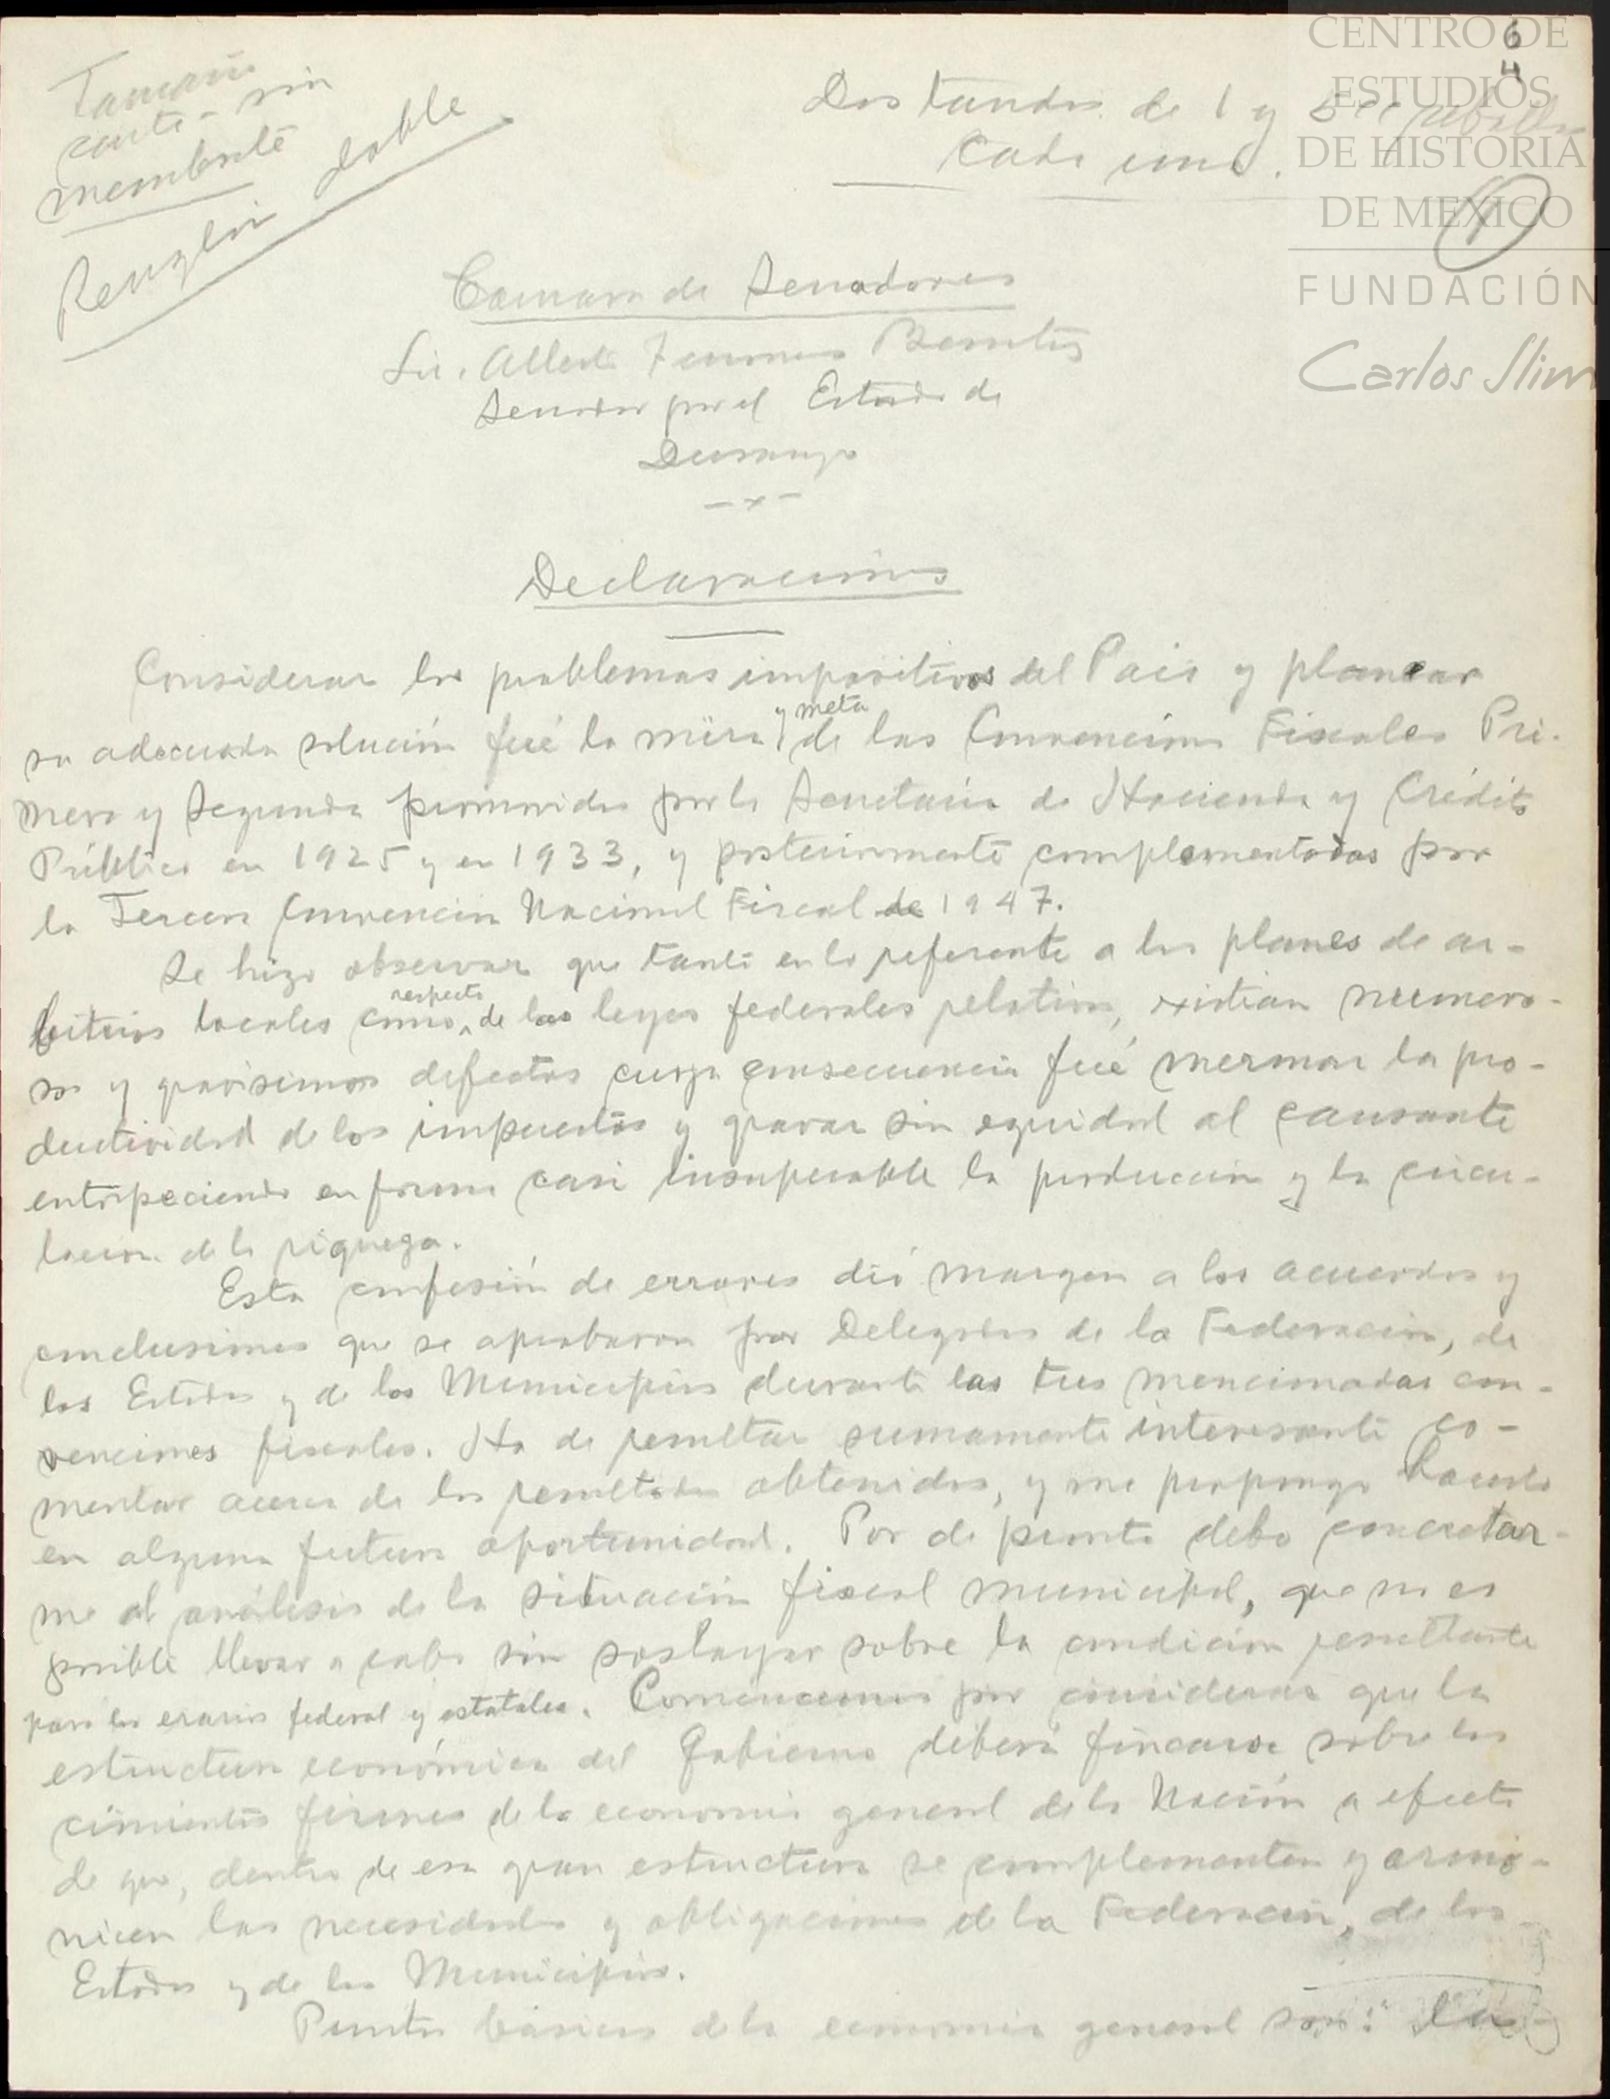 Tamaño
carta - sin
membrete
Renglón doble
Dos tandas de 1 y 5 cc
cada una.
6
4
1
CENTRO DE
ESTUDIOS
DE HISTORIA
DE MEXICO
FUNDACIÓN
Carlos Slim
Cámara de Senadores
Lic. Alberto Terrones Benítez
Senador por el Estado de
Durango
- x -
Declaraciones
Considerar los problemas impositivos del Pais y planear
su adecuada solución fué la mira y meta de las Convenciones Fiscales Pri-
mera y Segunda promovidas por la Secretaría de Hacienda y Crédito
Público en 1925 y en 1933, y posteriormente complementadas por
la Tercera Convención Nacional Fiscal de 1947.
Se hizo observar que tanto en lo referente a los planes de ar-
bitrios locales como respecto de las leyes federales relativas, existian numero-
sos y gravísimos defectos cuya consecuencia fué mermar la pro-
ductividad de los impuestos y gravar sin equidad al causante
entorpeciendo en forma casi insuperable la producción y la circu-
lación de la riqueza.
Esta confesión de errores dió margen a los acuerdos y
conclusiones que se aprobaron por Delegados de la Federación, de
los Estados y de los Municipios durante las tres mencionadas con-
venciones fiscales. Ha de resultar sumamente interesante co-
mentar acerca de los resultados obtenidos, y me propongo hacerlo
en alguna futura oportunidad. Por de pronto debo concretar-
me al análisis de la situación fiscal municipal, que no es
posible llevar a cabo sin soslayar sobre la condición resultante
para los erarios federal y estatales. Comencemos por considerar que la
estructura económica del Gobierno deberá fincarse sobre los
cimientos firmes de la economía general de la Nación a efecto
de que, dentro de esa gran estructura se complementen y armo-
nicen las necesidades y obligaciones de la Federación, de los
Estados y de los Municipios.
Puntos básicos de la economía general son: La